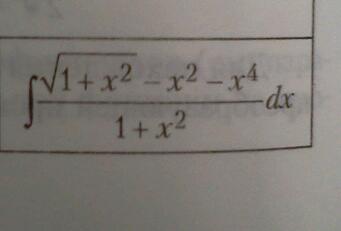 ∫ (√(1 + x²) − x² − x⁴)/(1 + x²) dx